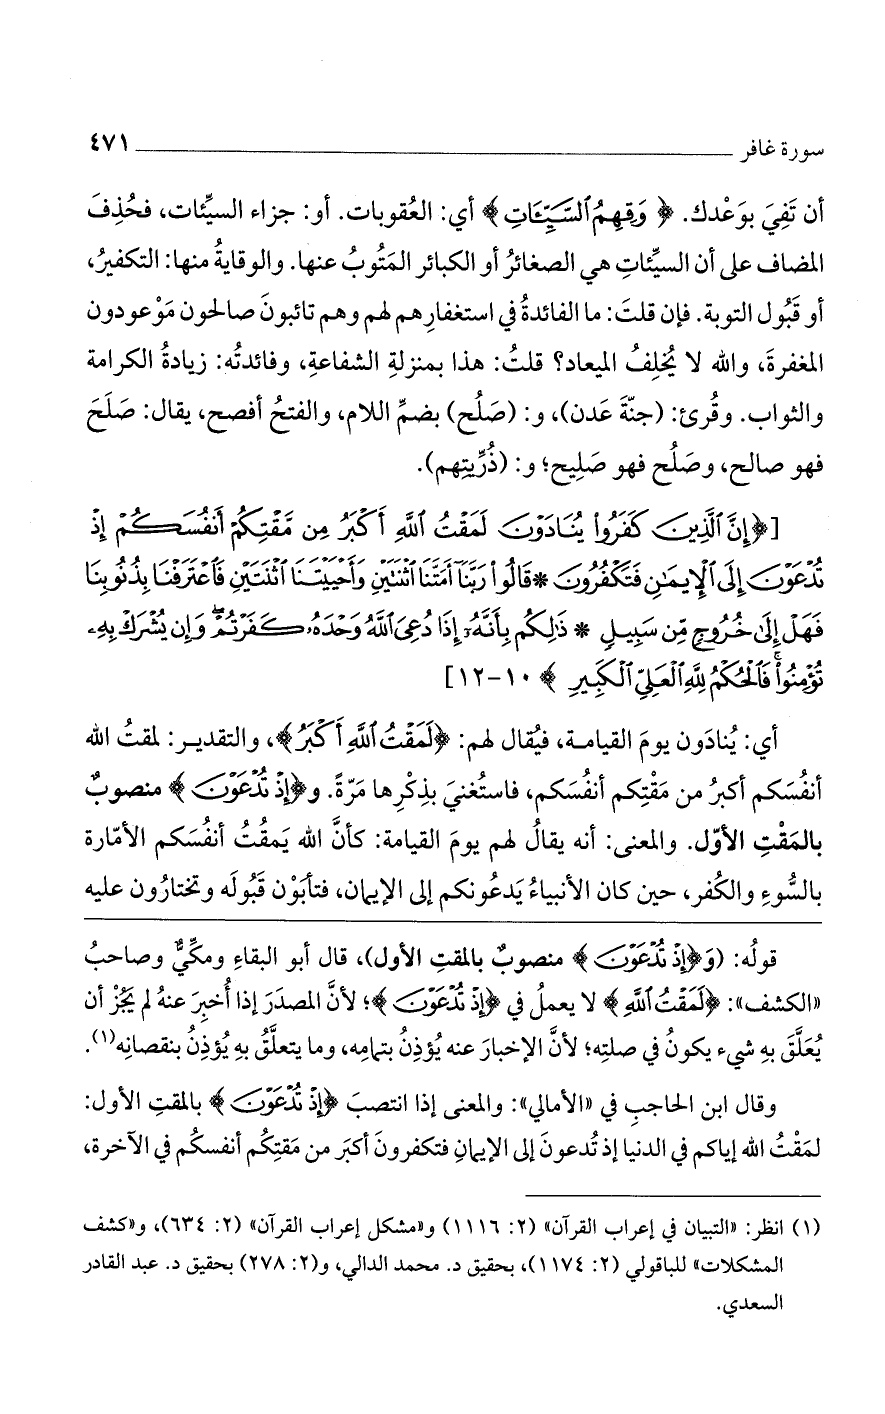 سورة غافر ٤٧١
أن تَفِيَ بوَعْدك. ﴿وَقِهِمُ ٱلسَّيِّـَٔاتِ﴾ أي: العُقوبات. أو: جزاء السيِّئات، فحُذِفَ
المضاف على أن السيِّئاتِ هي الصغائرُ أو الكبائر المَتُوبُ عنها. والوقايةُ منها: التكفيرُ،
أو قَبُول التوبة. فإن قلتَ: ما الفائدةُ في استغفارِهم لهم وهم تائبونَ صالحون مَوْعودون
المغفرةَ، والله لا يُخلِفُ الميعاد؟ قلتُ: هذا بمنزلةِ الشفاعةِ، وفائدتُه: زيادةُ الكرامة
والثواب. وقُرئ: (جنّةَ عَدن)، و: (صَلُح) بضمِّ اللام، والفتحُ أفصح، يقال: صَلَحَ
فهو صالح، وصَلُح فهو صَلِيح؛ و: (ذُرِّيتِهم).
[﴿إِنَّ ٱلَّذِينَ كَفَرُوا۟ يُنَادَوْنَ لَمَقْتُ ٱللَّهِ أَكْبَرُ مِن مَّقْتِكُمْ أَنفُسَكُمْ إِذْ
تُدْعَوْنَ إِلَى ٱلْإِيمَٰنِ فَتَكْفُرُونَ * قَالُوا۟ رَبَّنَآ أَمَتَّنَا ٱثْنَتَيْنِ وَأَحْيَيْتَنَا ٱثْنَتَيْنِ فَٱعْتَرَفْنَا بِذُنُوبِنَا
فَهَلْ إِلَىٰ خُرُوجٍ مِّن سَبِيلٍ * ذَٰلِكُم بِأَنَّهُۥٓ إِذَا دُعِىَ ٱللَّهُ وَحْدَهُۥ كَفَرْتُمْ ۖ وَإِن يُشْرَكْ بِهِۦ
تُؤْمِنُوا۟ ۚ فَٱلْحُكْمُ لِلَّهِ ٱلْعَلِىِّ ٱلْكَبِيرِ﴾ ١٠-١٢]
أي: يُنادَون يومَ القيامة، فيُقال لهم: ﴿لَمَقْتُ ٱللَّهِ أَكْبَرُ﴾، والتقدير: لمقتُ الله
أنفُسَكم أكبرُ من مَقْتِكم أنفُسَكم، فاستُغنيَ بذِكْرِها مَرّةً. و﴿إِذْ تُدْعَوْنَ﴾ منصوبٌ
بالمَقْتِ الأوّل. والمعنى: أنه يقالُ لهم يومَ القيامة: كأنَّ الله يَمقُتُ أنفُسَكم الأمّارة
بالسُّوءِ والكُفر، حين كان الأنبياءُ يَدعُونكم إلى الإيمان، فتأبَوْن قَبُولَه وتختارُون عليه
قولُه: (وَ﴿إِذْ تُدْعَوْنَ﴾ منصوبٌ بالمقتِ الأول)، قال أبو البقاءِ ومكِّيٌّ وصاحبُ
«الكشف»: ﴿لَمَقْتُ ٱللَّهِ﴾ لا يعملُ في ﴿إِذْ تُدْعَوْنَ﴾؛ لأنَّ المصدَرَ إذا أُخبِرَ عنهُ لم يَجُزْ أن
يُعَلَّقَ بهِ شيء يكونُ في صلتِه؛ لأنَّ الإخبارَ عنه يُؤذِنُ بتمامِه، وما يتعلَّقُ بهِ يُؤذِنُ بنقصانِه(١).
وقال ابن الحاجبِ في «الأمالي»: والمعنى إذا انتصبَ ﴿إِذْ تُدْعَوْنَ﴾ بالمقتِ الأول:
لمَقْتُ الله إياكم في الدنيا إذ تُدعونَ إلى الإيمانِ فتكفرونَ أكبَر من مَقتِكُم أنفسكُم في الآخرة،
(١) انظر: «التبيان في إعراب القرآن» (٢: ١١١٦) و«مشكل إعراب القرآن» (٢: ٦٣٤)، و«كشف
المشكلات» للباقولي (٢: ١١٧٤)، بحقيق د. محمد الدالي، و(٢: ٢٧٨) بحقيق د. عبد القادر
السعدي.